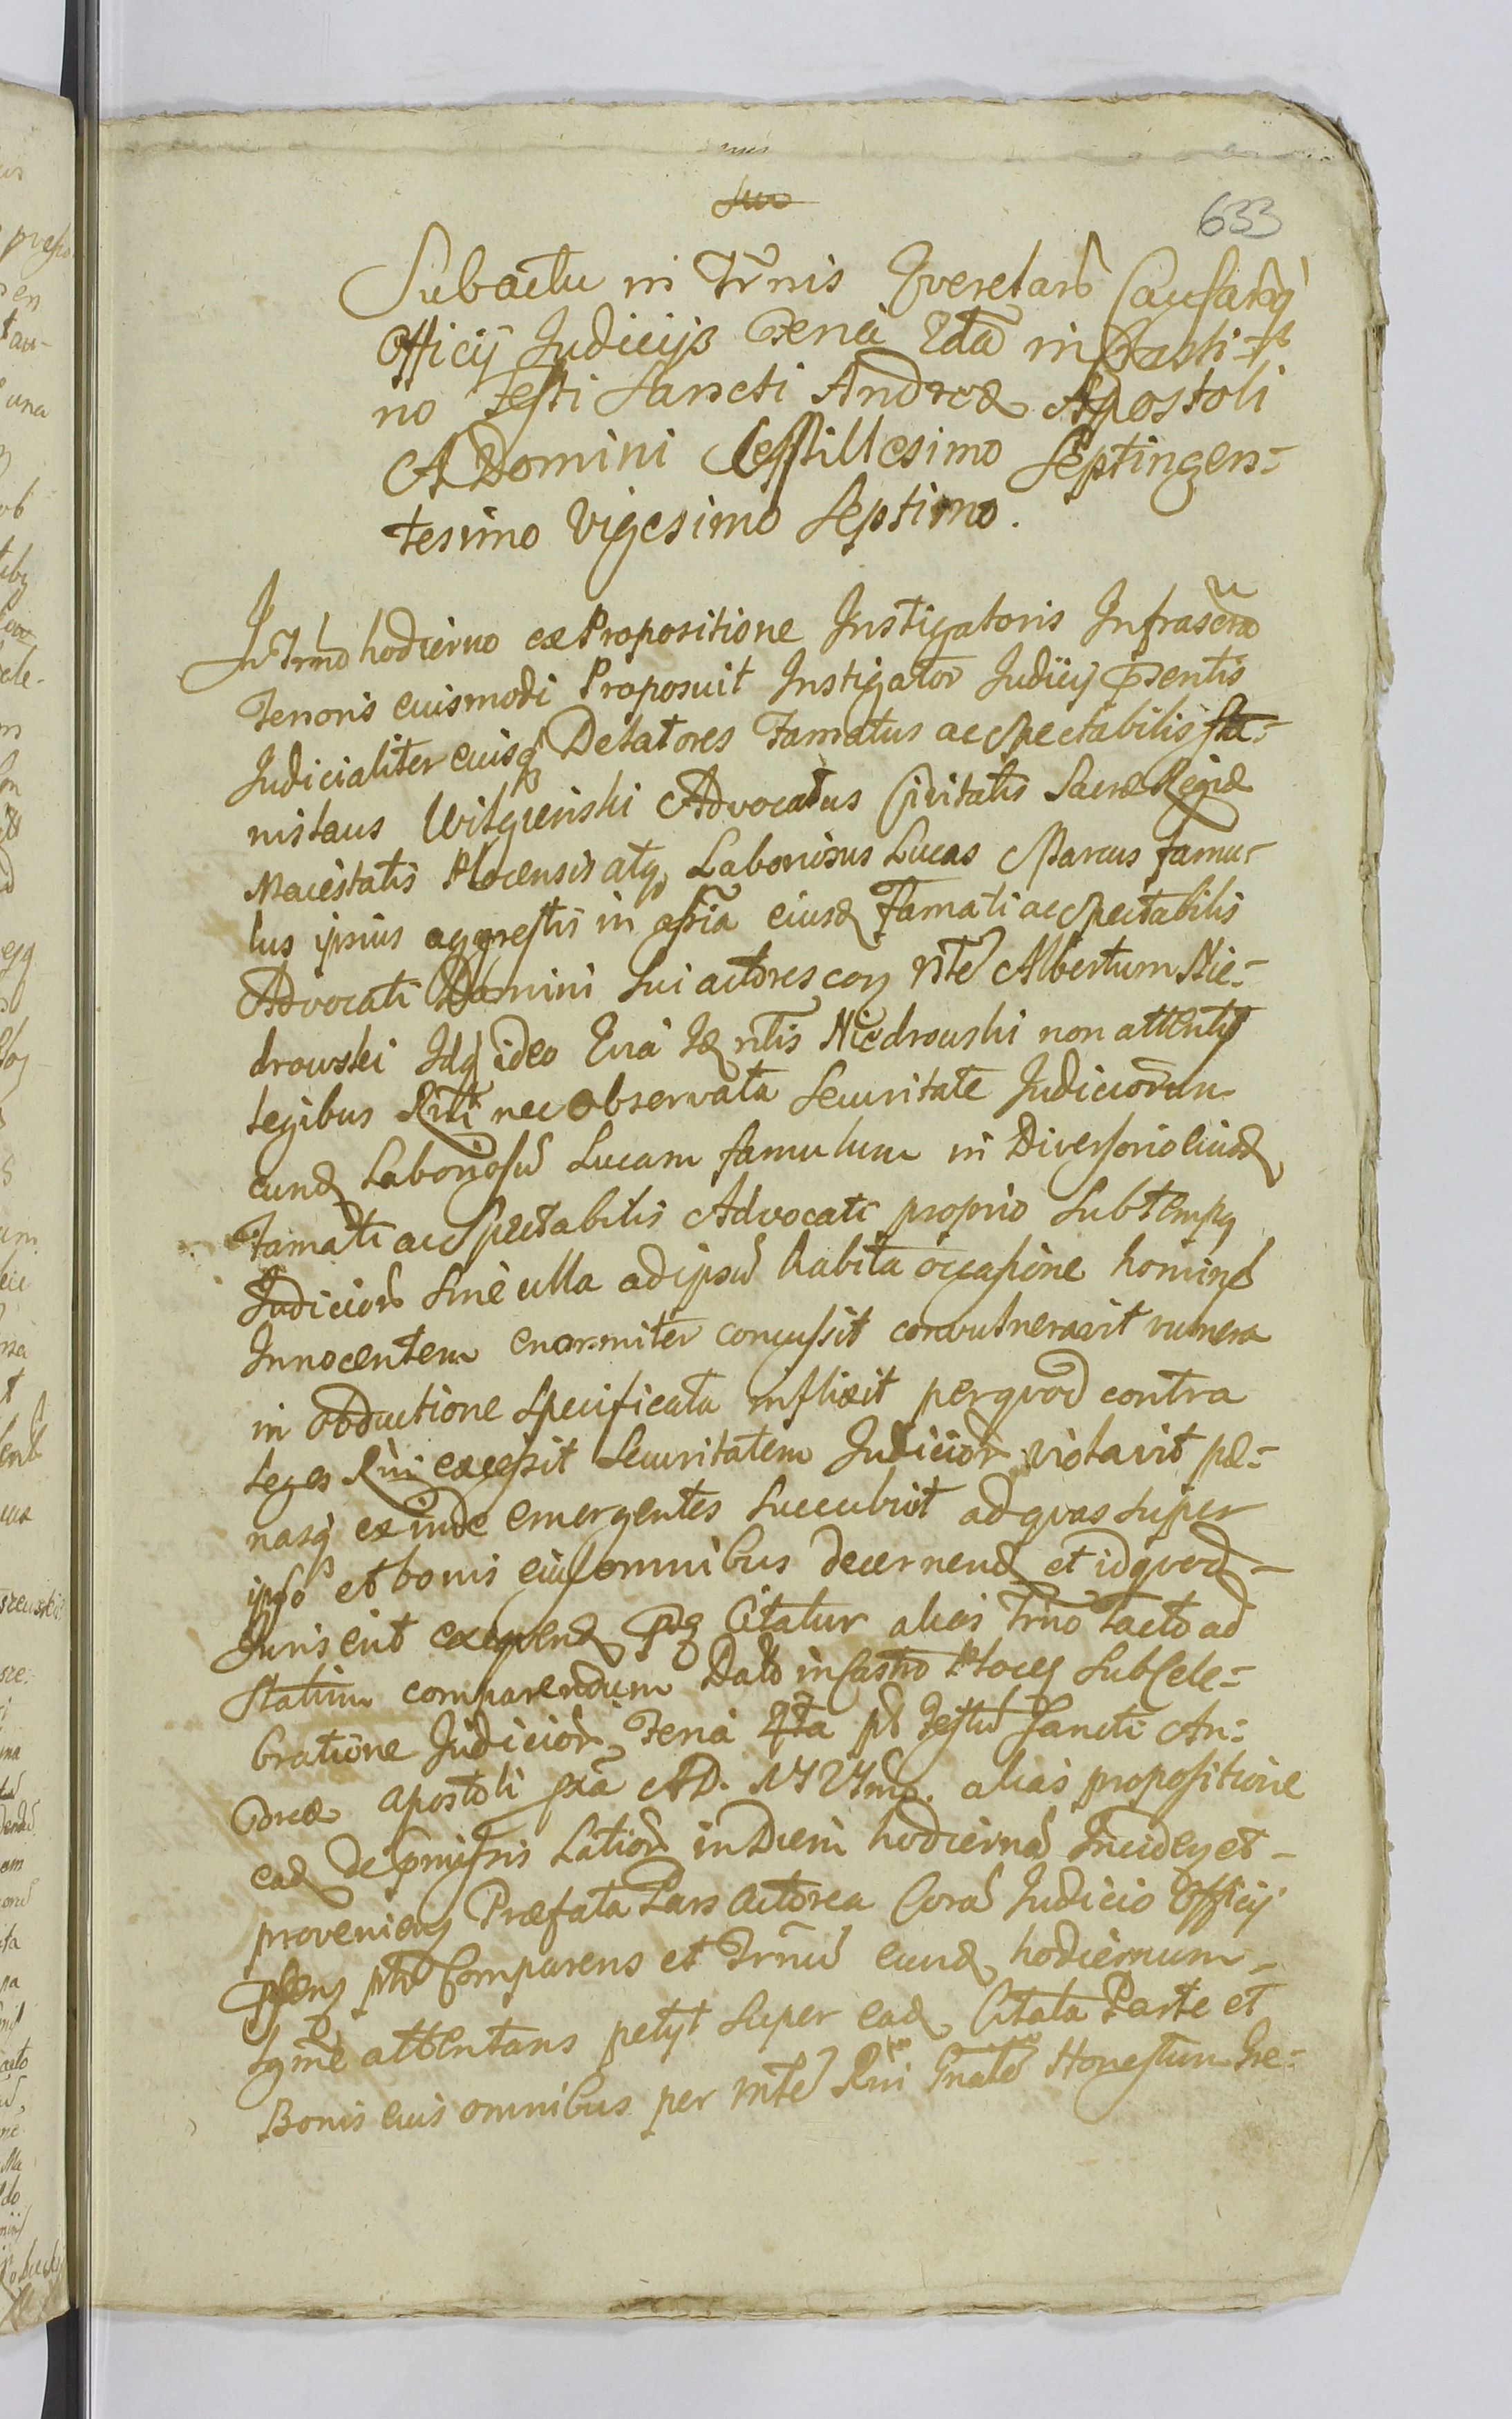 633
Sub actu in Tr̃nis Querelar̃ Causarq̃
Officij Judicijs Feria 2da in Crasti-
no Festi Sancti Andreæ Apostoli
A Domini Millesimo Septingen-
tesimo Vigesimo Septimo.
In Trño hodierno ex Propositione Instigatoris Infrascr̃a
Tenoris eiusmodi Proposuit Instigator Judicij Pñtis
Judicialiter eiusq Delatores Famatus ac Spectabilis Sta-
nislaus Wilgienski Advocatus Civitatis Sacræ Regiæ
Maiestatis Plocensis atq Laboriosus Lucas Marcus famu-
lus ipsius aggrestis in assia eiusd Famati ac Spectabilis
Advocati Domini sui actores con Nten Albertum Nie-
drowski Idq ideo Quia Id ntis Niedrowski non attentis
legibus Regni nec observata Securitate Judiciorum
eund Laboriosũ Lucam famulum in Diversorio eiusd
Famati ac Spectabilis Advocati proprio sub tempq
Judicior̃ sine ulla ad ipsũ habita occasione hominẽ
Innocentem enormiter concussit convulneravit vulnera
in obductione specificata inflixit per quod contra
leges Rñi excessit Securitatem Judicior̃ violavit pæ-
nasq exinde emergentes succubuit ad quas super
ipso et bonis eius omnibus decernend et id quod
Juris erit exequend Citatur alias Trño tacto ad
Statim comparendum Dat in Castro Plocen sub Cele-
bratione Judicior̃ Feria 4ta pt Festũ Sancti An-
dreæ Apostoli AD. 1727mo. alias propositione
ead de præmissis Latior̃ in Diem hodiernã Inciden et
provenien Præfata Pars Actorea Corã Judicio Officij
Pñen ptr Comparens et Trñũ eund hodiernum
Lgme attentans petyt super ead Citata Parte et
Bonis eius omnibus per mte Rñi Gnalẽ Honestum Gre-